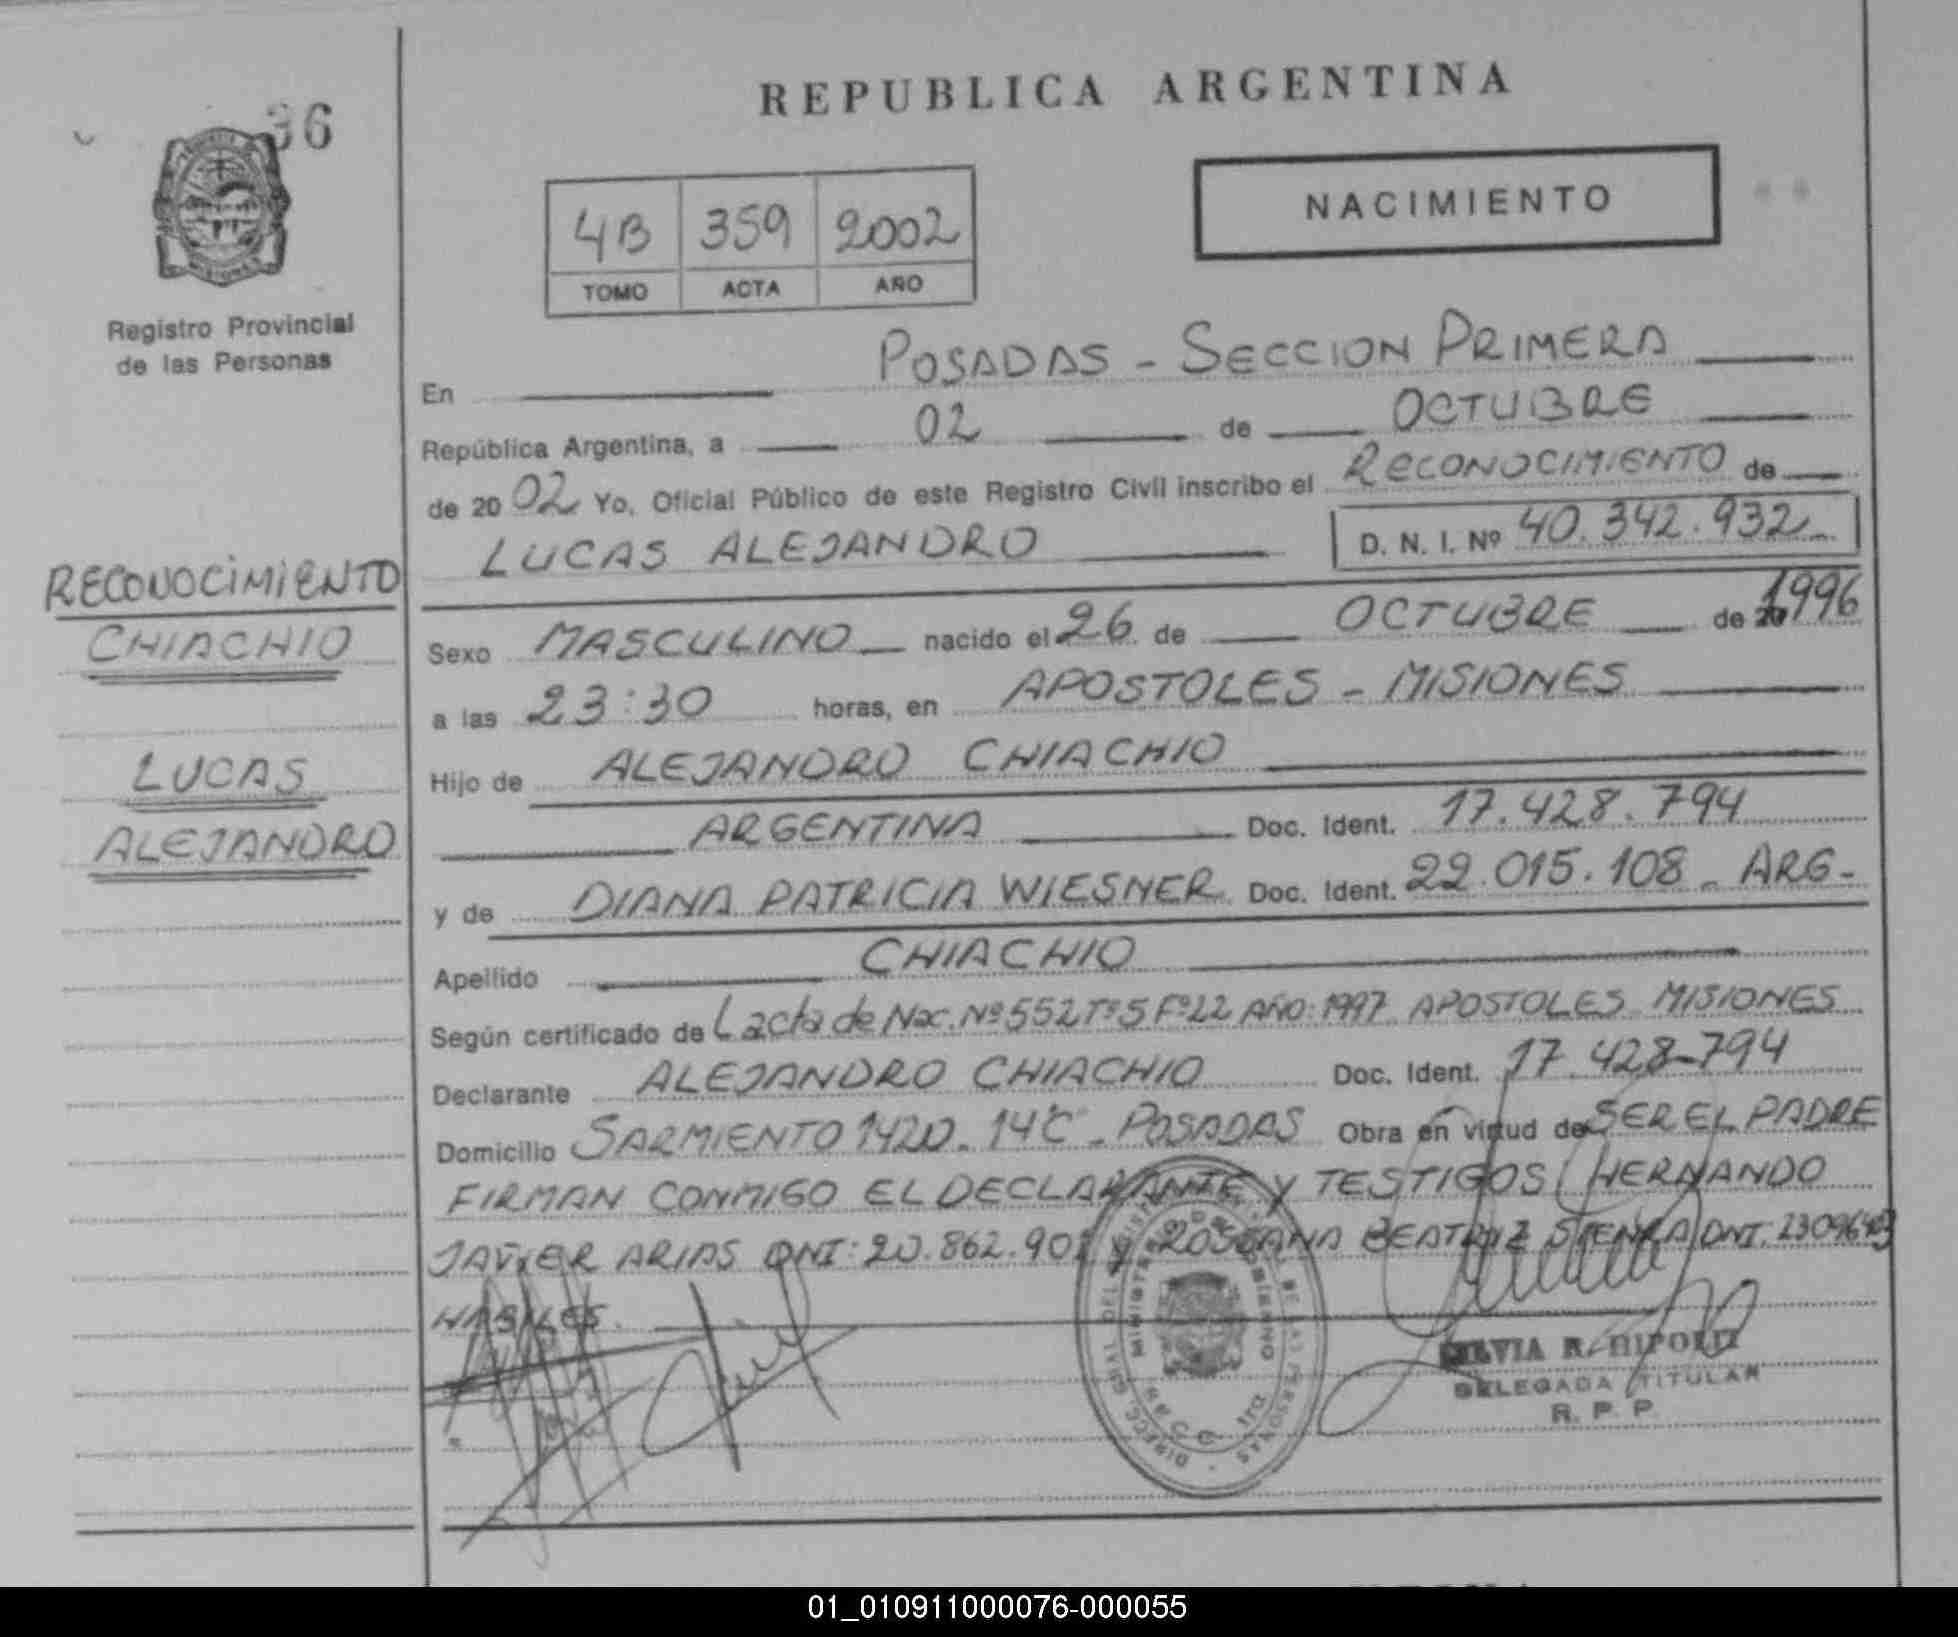 36
REPUBLICA ARGENTINA
NACIMIENTO
4B 359 2002
TOMO ACTA AÑO
Registro Provincial
de las Personas
En POSADAS - SECCION PRIMERA
República Argentina, a 02 de OCTUBRE
de 20 02 Yo, Oficial Público de este Registro Civil inscribo el RECONOCIMIENTO de
LUCAS ALEJANDRO D. N. I. Nº 40.342.932
RECONOCIMIENTO
CHIACHIO
LUCAS
ALEJANDRO
Sexo MASCULINO nacido el 26 de OCTUBRE de 1996
a las 23:30 horas, en APOSTOLES - MISIONES
Hijo de ALEJANDRO CHIACHIO
ARGENTINA Doc. Ident. 17.428.794
y de DIANA PATRICIA WIESNER Doc. Ident. 22.015.108 - ARG-
Apellido CHIACHIO
Según certificado de Lacta de Nac. Nº 552 Tº 5 Fº 22 AÑO: 1997 APOSTOLES MISIONES
Declarante ALEJANDRO CHIACHIO Doc. Ident. 17.428-794
Domicilio SARMIENTO 1420 - 14 C - POSADAS Obra en virtud de SER EL PADRE
FIRMAN CONMIGO EL DECLARANTE Y TESTIGOS HERNANDO
JAVIER ARIAS DNI: 20.862.90 BEATRIZ DNI:
HABILES.
MINISTERIO DE GOBIERNO
SILVIA R. HIPOLIT
DELEGADA TITULAR
R. P. P.
01_010911000076-000055